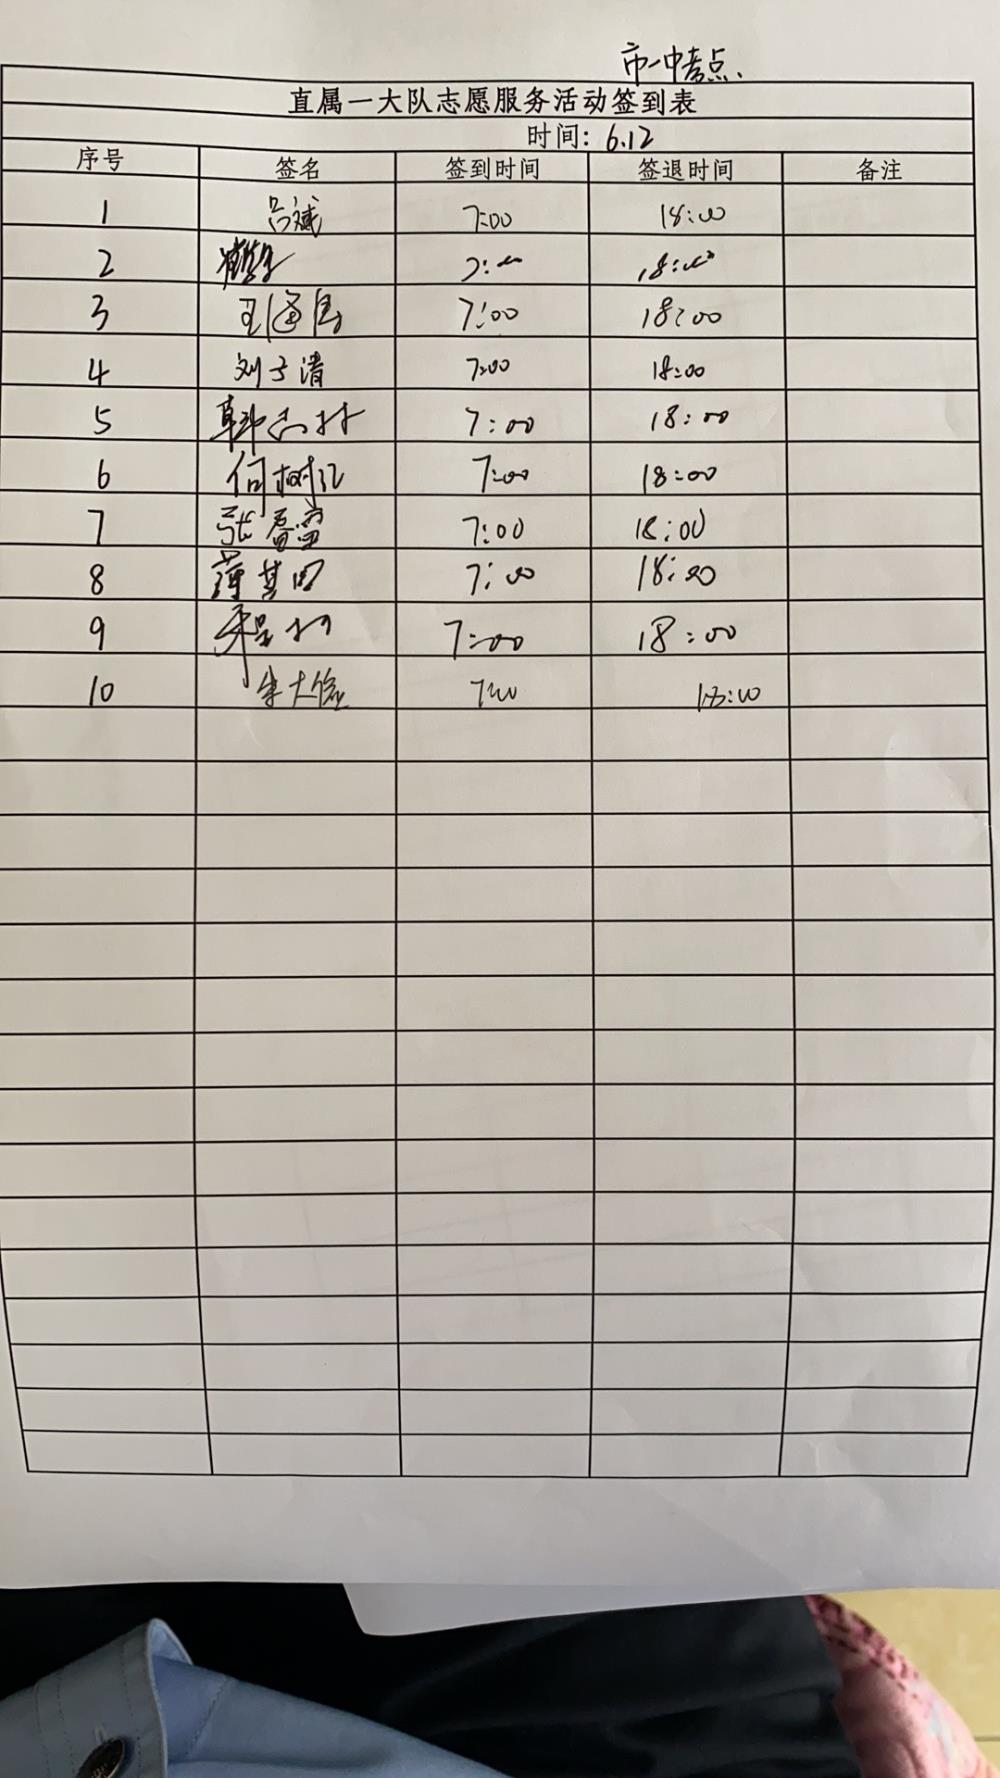 市一中考点
直属一大队志愿服务活动签到表
时间: 6.12
序号 签名 签到时间 签退时间 备注
1 吕斌 7:00 18:00
2 7:00 18:00
3 7:00 18:00
4 刘子清 7:00 18:00
5 韩志村 7:00 18:00
6 何树江 7:00 18:00
7 张春雷 7:00 18:00
8 薄其田 7:00 18:00
9 7:00 18:00
10 朱大俭 7:00 18:00